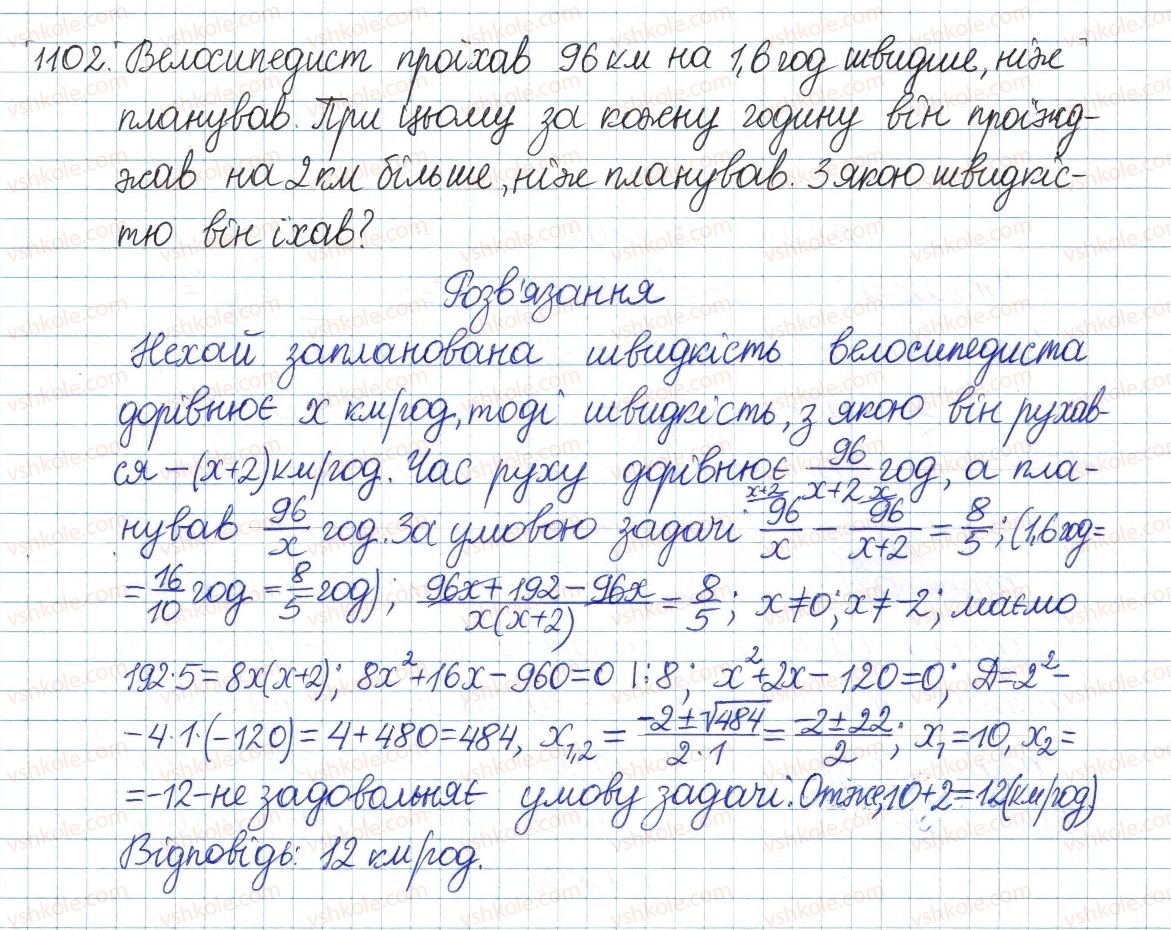 1102. Велосипедист проїхав 96 км на 1,6 год швидше, ніж
планував. При цьому за кожну годину він проїжд-
жав на 2 км більше, ніж планував. З якою швидкіс-
тю він їхав?
Розв'язання
Нехай запланована швидкість велосипедиста
дорівнює x км/год, тоді швидкість, з якою він рухав-
ся – (x+2) км/год. Час руху дорівнює 96/(x+2) год, а пла-
нував 96/x год. За умовою задачі ^(x+2) 96/x – ^x 96/(x+2) = 8/5; (1,6 год =
= 16/10 год = 8/5 год); (96x + 192 – 96x)/(x(x+2)) = 8/5; x ≠ 0; x ≠ -2; маємо
192·5 = 8x(x+2); 8x² + 16x – 960 = 0 |:8; x² + 2x – 120 = 0; Д = 2² –
– 4·1·(–120) = 4 + 480 = 484, x₁,₂ = (–2 ± √484)/(2·1) = (–2 ± 22)/2; x₁ = 10, x₂ =
= –12 – не задовольняє умову задачі. Отже, 10 + 2 = 12 (км/год)
Відповідь: 12 км/год.
vshkole.com